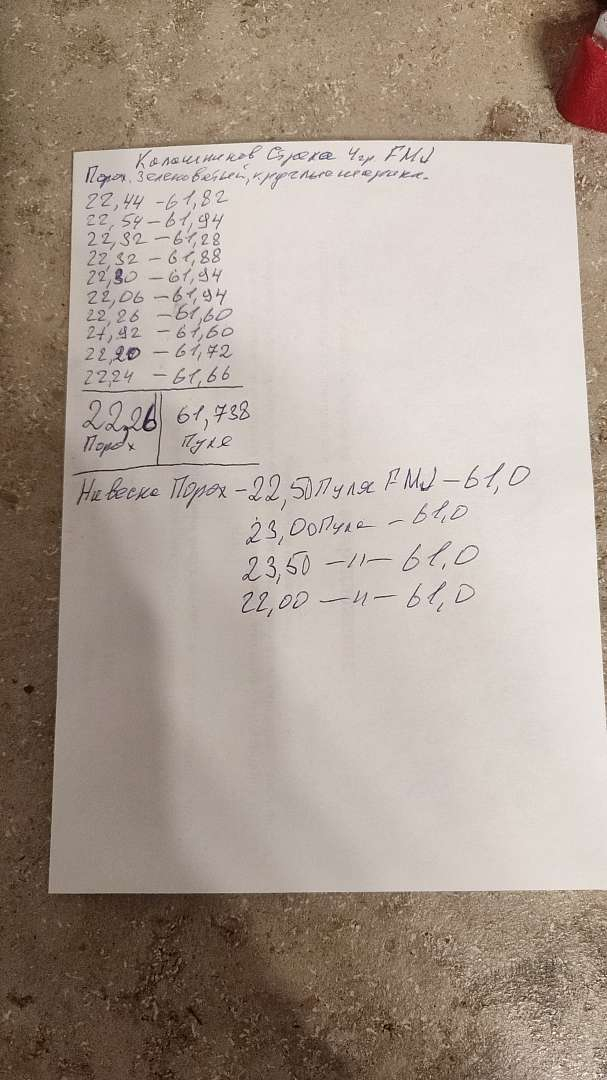 Калашников Страка 4гр FMJ
Порох. Зеленоватый, круглые шарики.
22,44 - 61,82
22,54 - 61,94
22,32 - 61,28
22,32 - 61,88
22,30 - 61,94
22,06 - 61,94
22,26 - 61,60
21,92 - 61,60
22,20 - 61,72
22,24 - 61,66
22,26 61,738
Порох Пуля
Навеска Порох - 22,50 Пуля FMJ - 61,0
23,00 Пуля - 61,0
23,50 -"- 61,0
22,00 -"- 61,0